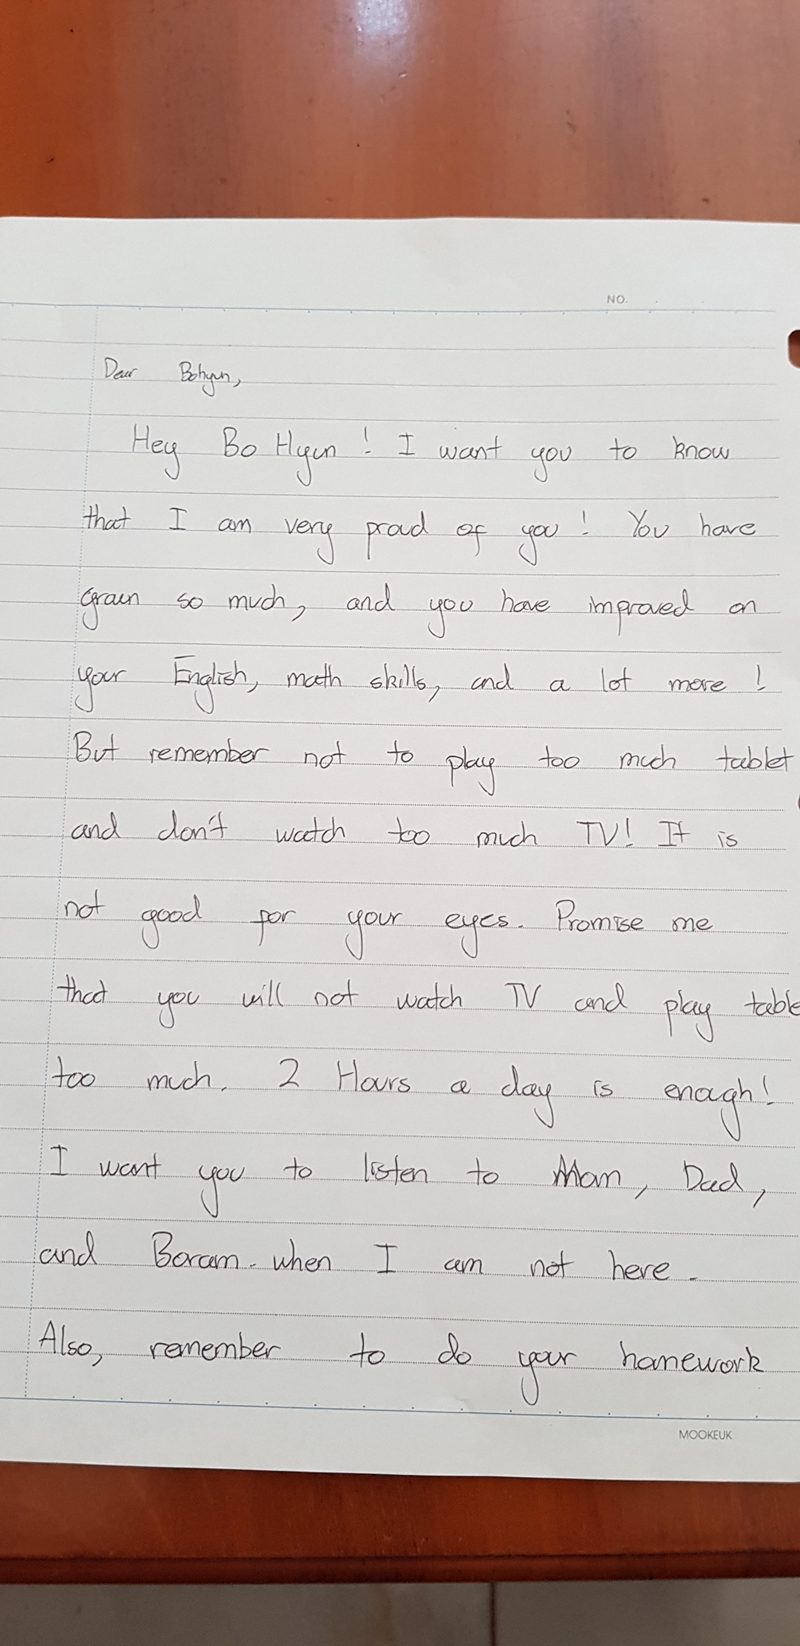 NO.
Dear Bohyun,
Hey Bo Hyun! I want you to know
that I am very proud of you! You have
grown so much, and you have improved on
your English, math skills, and a lot more!
But remember not to play too much tablet
and don't watch too much TV! It is
not good for your eyes. Promise me
that you will not watch TV and play table
too much. 2 Hours a day is enough!
I want you to listen to Mom, Dad,
and Boram when I am not here.
Also, remember to do your homework
MOOKEUK